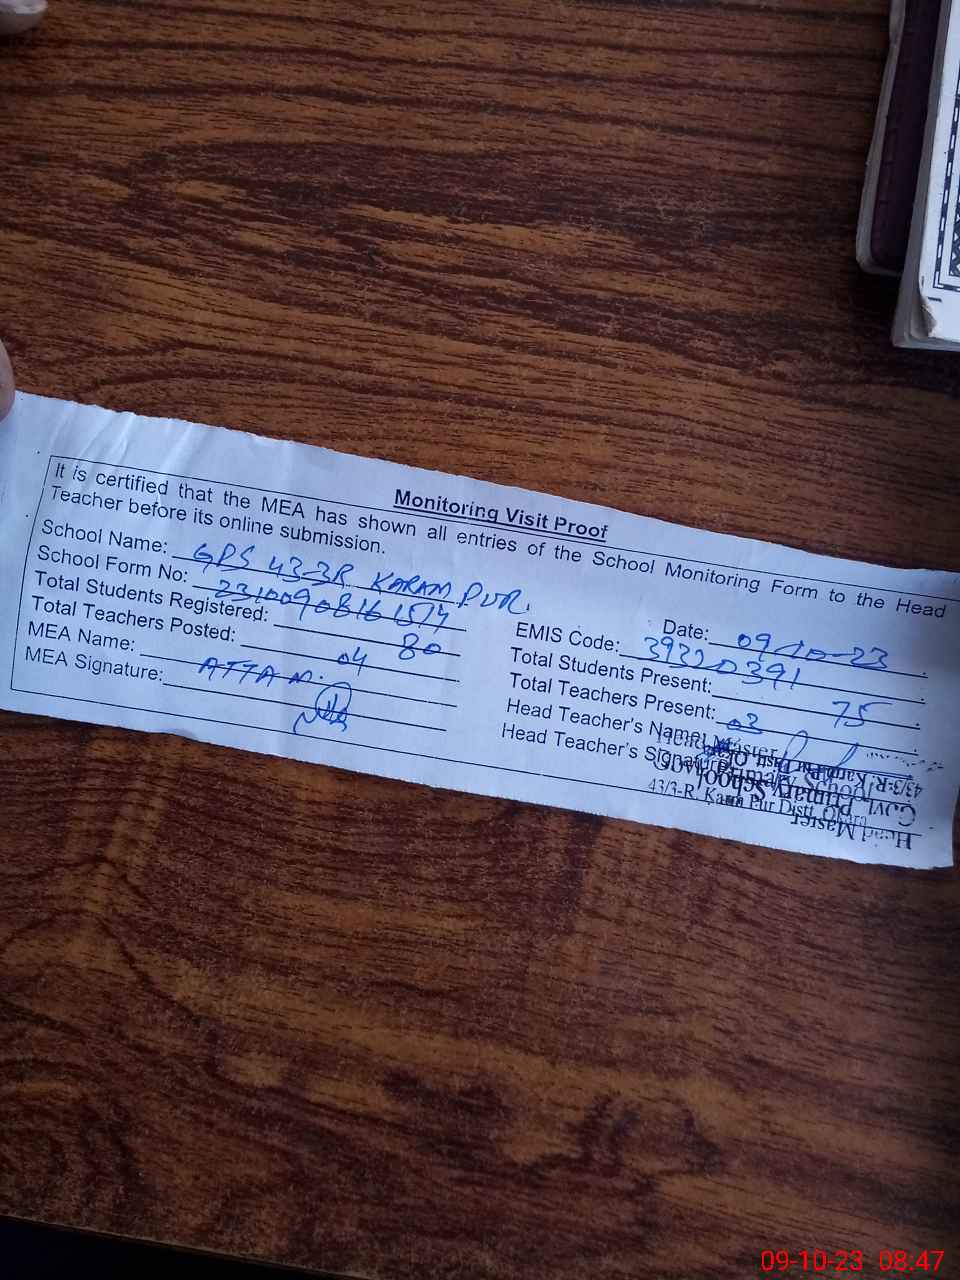 Monitoring Visit Proof
It is certified that the MEA has shown all entries of the School Monitoring Form to the Head
Teacher before its online submission.
School Name: GPS 43-3R KARAM PUR.
Date: 09-10-23
School Form No:
EMIS Code: 39320391
Total Students Registered: 80
Total Students Present: 75
Total Teachers Posted: 04
Total Teachers Present: 03
MEA Name: ATTA M.
Head Teacher's Name:
MEA Signature:
Head Teacher's Signature:
Head Master
Govt. Primary School
43/3-R. Kara Pur Distt. Okara
Head Master
Govt. Primary School
43/3-R. Kara Pur Distt. Okara
09-10-23 08:47